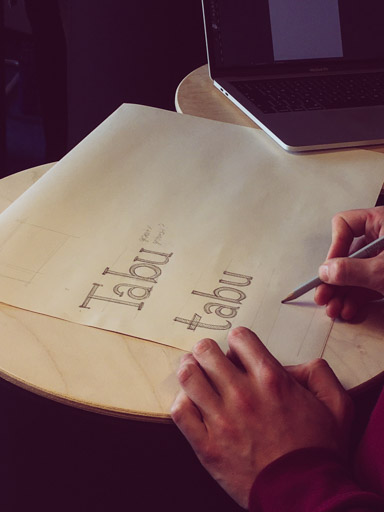 Tabu
tabu